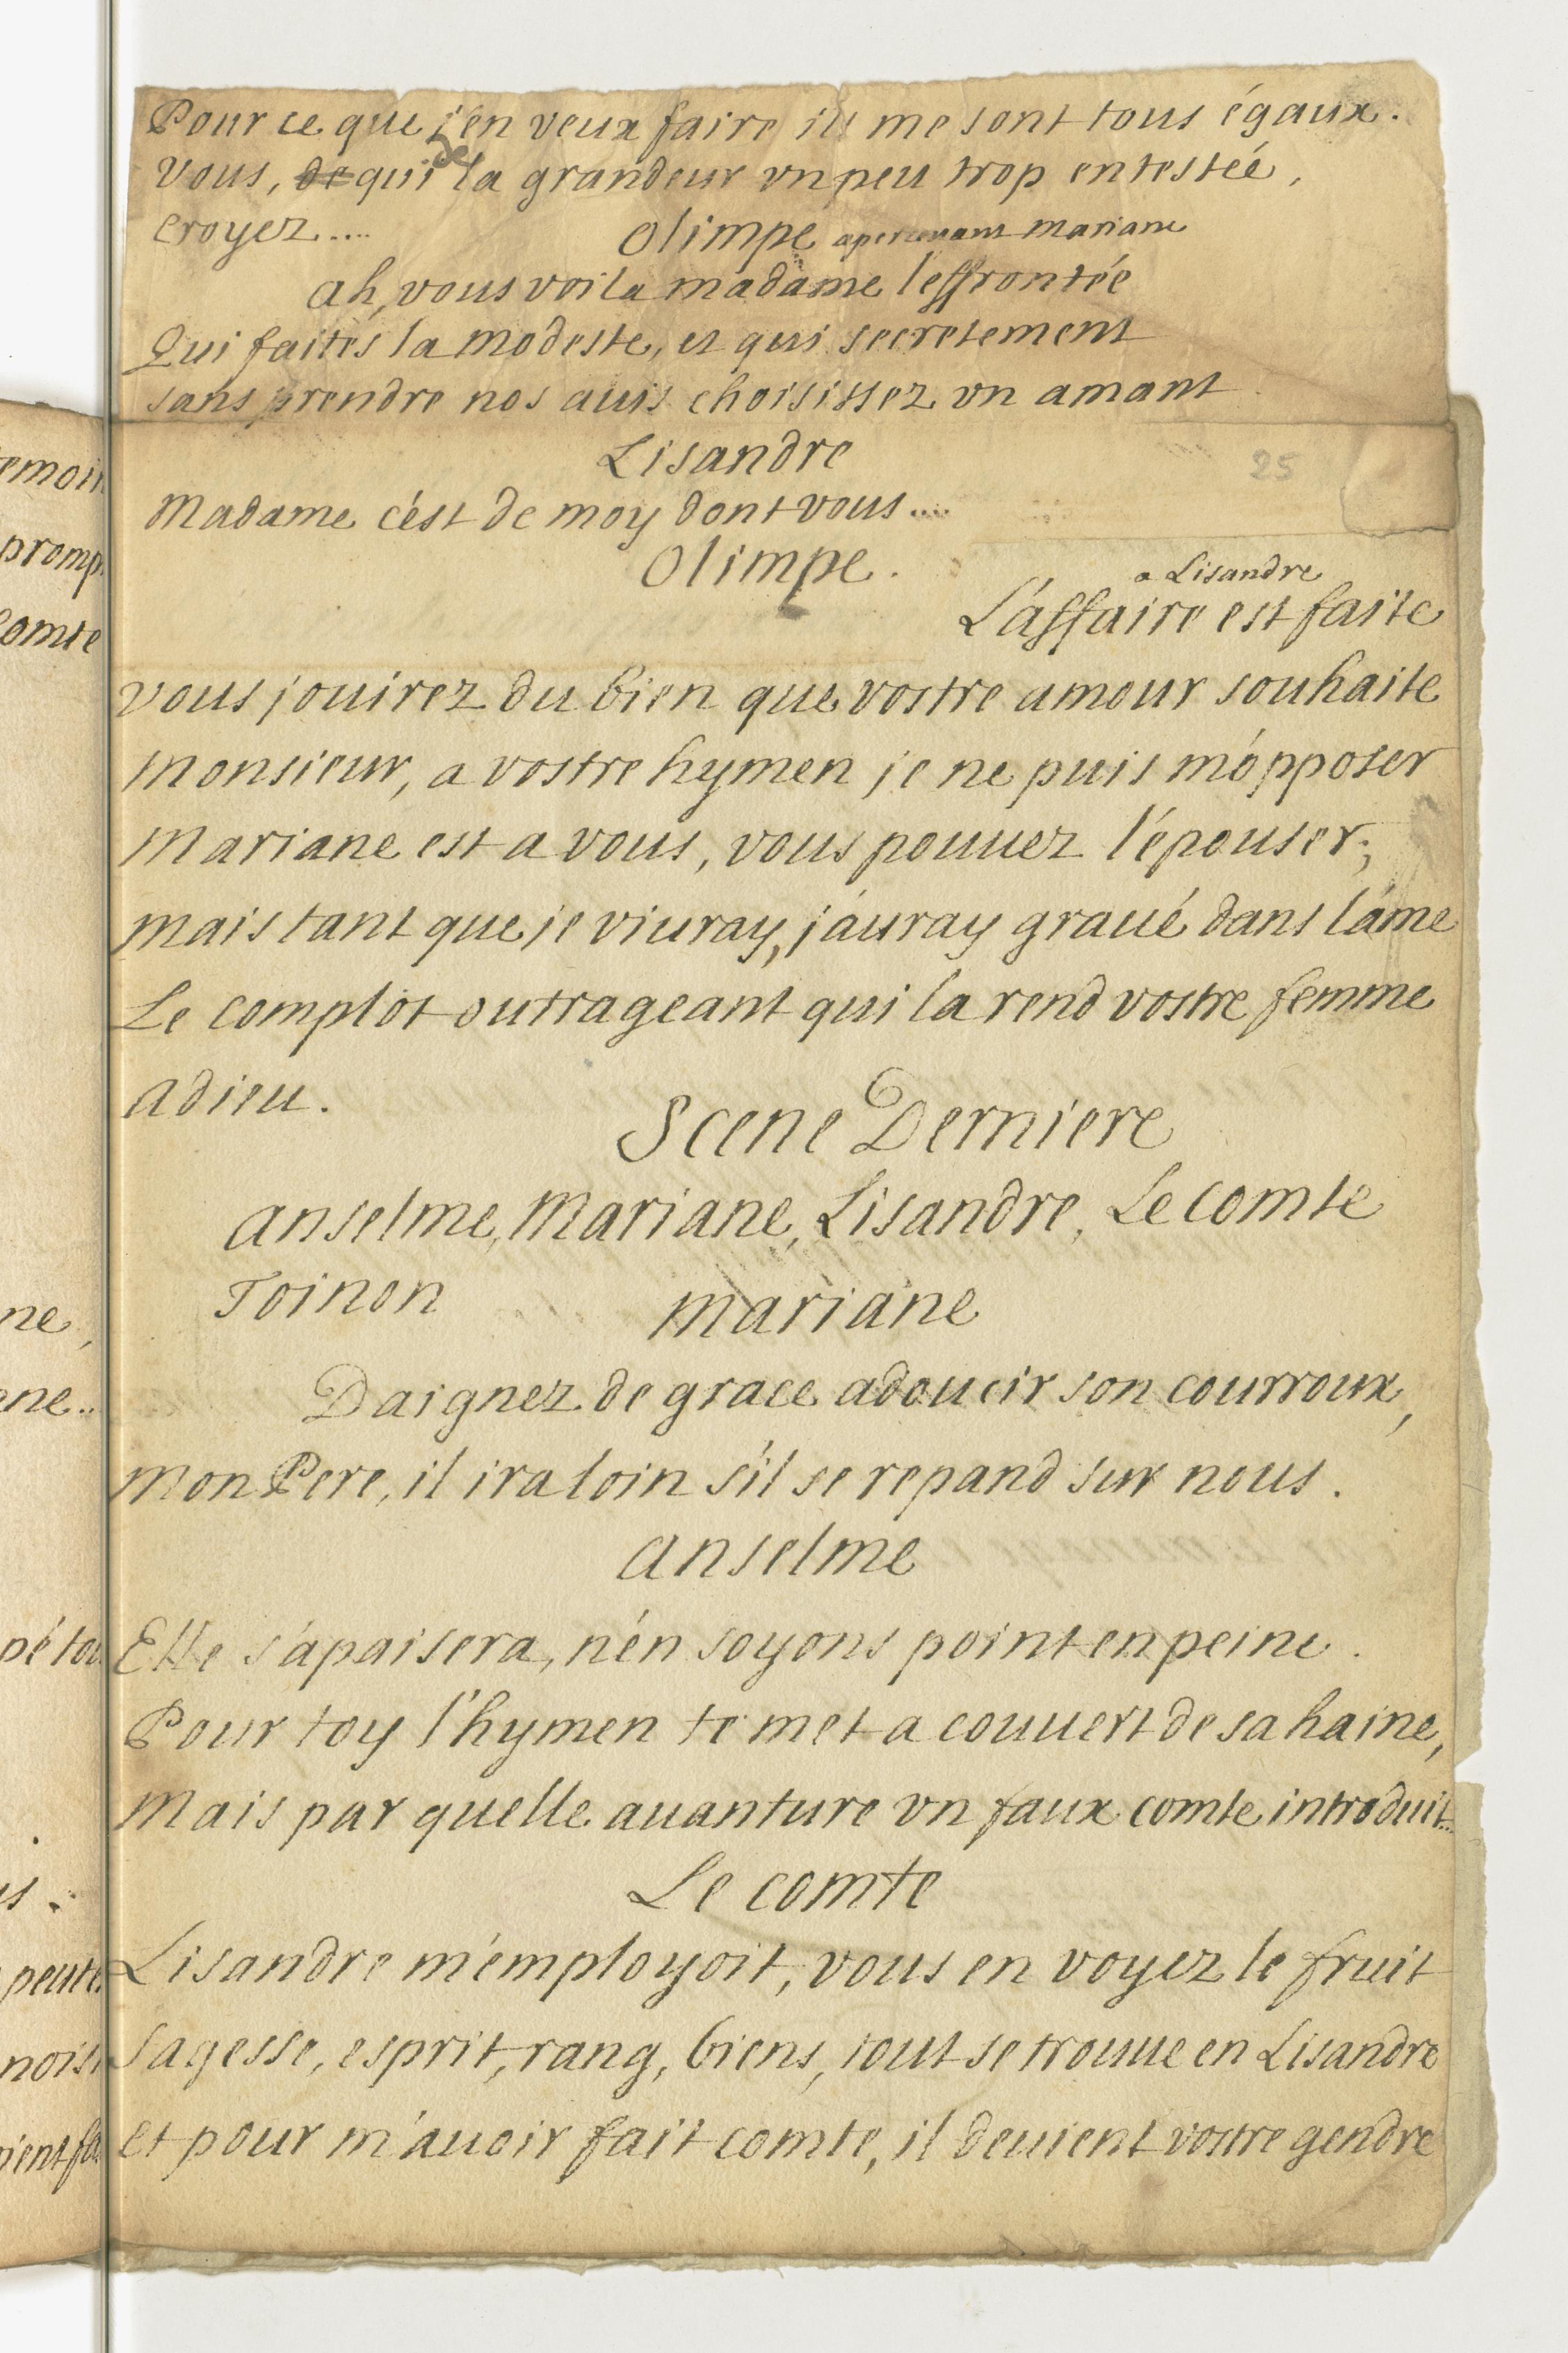 Pour ce que j'en veux faire ils me sont tous égaux.
Vous, de qui de la grandeur vn peu trop entestéé,
croyez....
Olimpe aperceuant Mariane
ah, vous voila madame l'effrontée
Qui faites la modeste, et qui secretement
sans prendre nos auis choisissez vn amant
Lisandre
25
Madame c'ést de moy dont vous....
Olimpe.
a Lisandre
L'affaire est faite
vous jouirez du bien que vostre amour souhaite
Monsieur, a vostre hymen je ne puis m'ópposer
Mariane est a vous, vous pouuez l'épouser;
mais tant que je viuray, j'auray graué dans l'áme
Le complot outrageant qui la rend vostre femme
adieu.
Scene Derniere
anselme, Mariane, Lisandre, Le comte
Toinon
Mariane
Daignez de grace adoucir son courroux,
mon Pere, il ira loin s'il se repand sur nous.
anselme
Elle s'apaisera, n'én soyons point en peine.
Pour toy l'hymen te met a couuert de sa haine,
Mais par quelle auanture vn faux comte introduit...
Le comte
Lisandre m'employoit, vous en voyez le fruit
Sagesse, esprit, rang, biens, tout se trouue en Lisandre
et pour m'auoir fait comte, il deuient vostre gendre